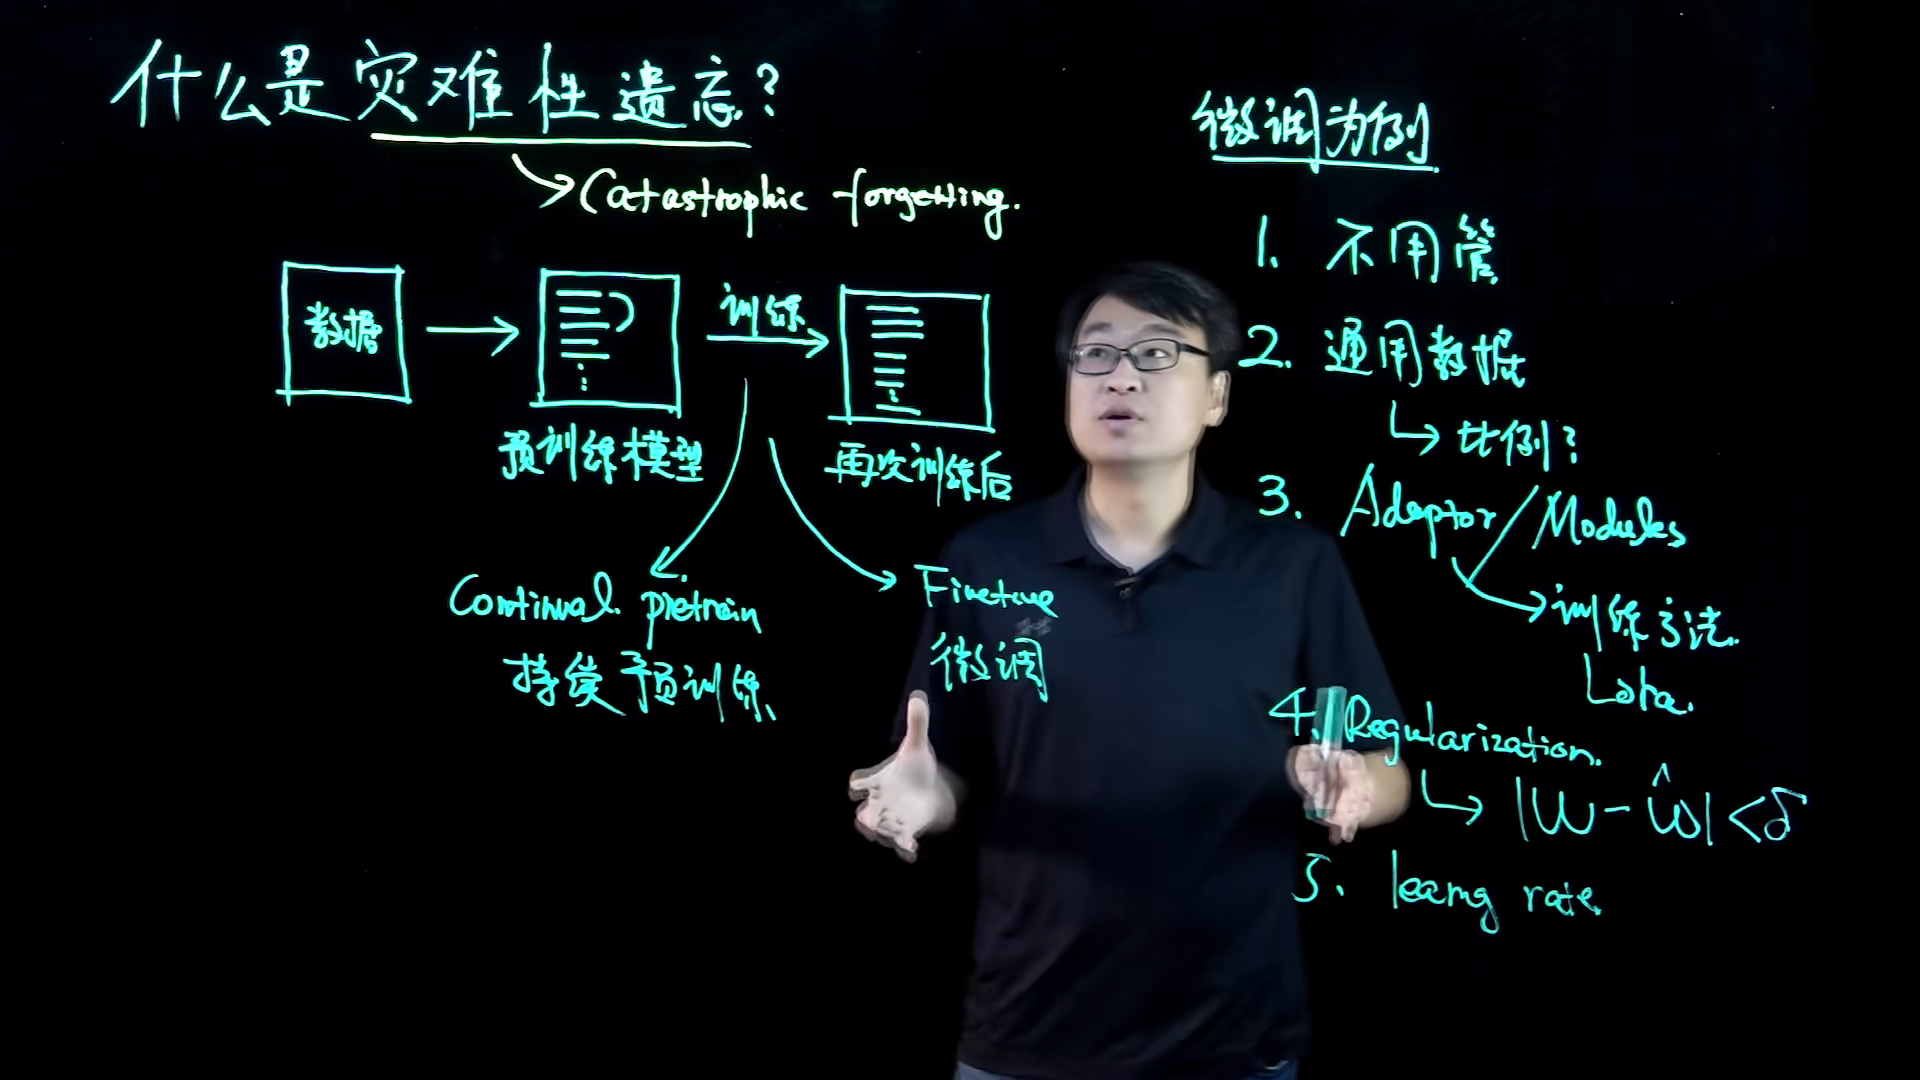 什么是灾难性遗忘?
Catastrophic forgetting.
数据
训练
预训练模型
再次训练后
Continual pretrain
持续预训练
Finetune
微调
微调为例
1. 不用管
2. 通用数据
比例?
3. Adaptor / Modules
训练方法.
Lora.
4. Regularization.
|W - ŵ| < δ
5. learng rate.